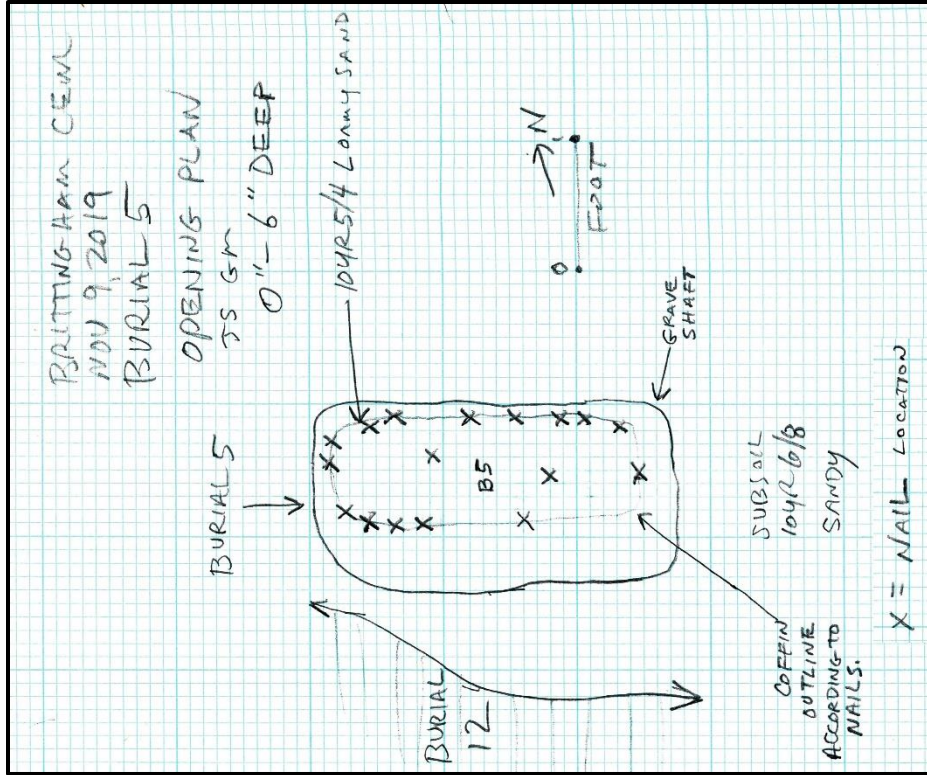 BRITTINGHAM CEM
NOV 9, 2019
BURIAL 5
OPENING PLAN
JS GM
0"-6" DEEP
10YR5/4 LOAMY SAND
BURIAL 5
B5
GRAVE
SHAFT
N
0 1
FOOT
BURIAL
12
SUBSOIL
10YR 6/8
SANDY
COFFIN
OUTLINE
ACCORDING TO
NAILS.
X = NAIL LOCATION